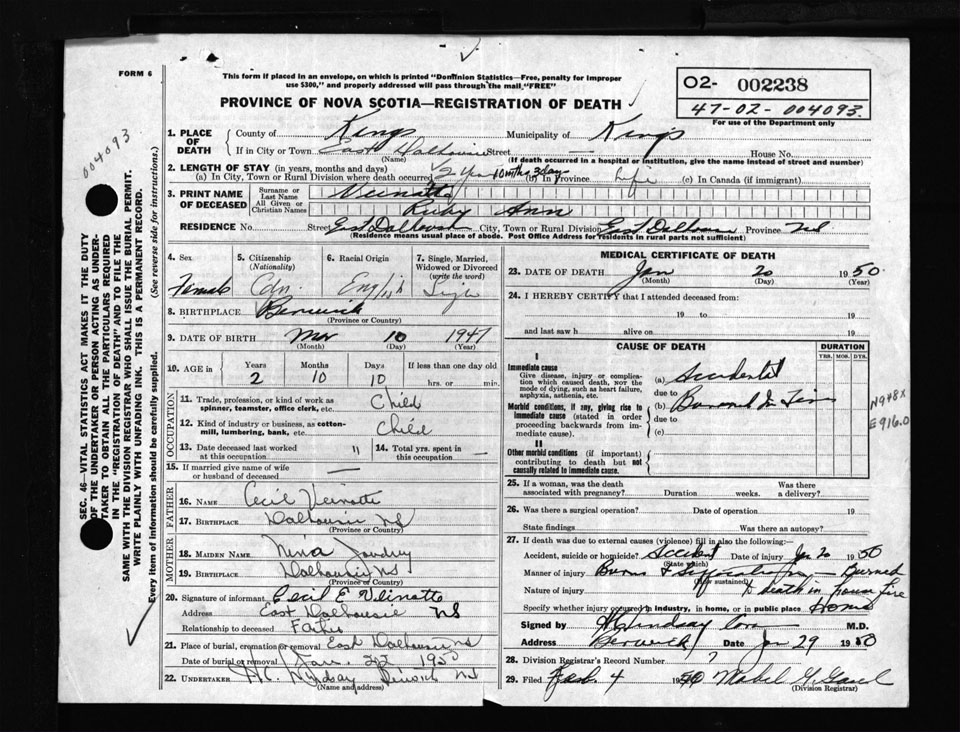 FORM 6
This form if placed in an envelope, on which is printed "Dominion Statistics—Free, penalty for improper
use $300," and properly addressed will pass through the mail "FREE"
PROVINCE OF NOVA SCOTIA—REGISTRATION OF DEATH
02- 002238
47-02-004093.
For use of the Department only
004093
SEC. 46—VITAL STATISTICS ACT MAKES IT THE DUTY
OF THE UNDERTAKER OR PERSON ACTING AS UNDER-
TAKER TO OBTAIN ALL THE PARTICULARS REQUIRED
IN THE "REGISTRATION OF DEATH" AND TO FILE THE
SAME WITH THE DIVISION REGISTRAR WHO SHALL ISSUE THE BURIAL PERMIT.
WRITE PLAINLY WITH UNFADING INK. THIS IS A PERMANENT RECORD.
Every item of information should be carefully supplied. (See reverse side for instructions.)
1. PLACE OF DEATH County of Kings Municipality of Kings
If in City or Town East Dalhousie Street House No.
(Name) (If death occurred in a hospital or institution, give the name instead of street and number)
2. LENGTH OF STAY (in years, months and days)
(a) In City, Town or Rural Division where death occurred 2 yrs 10 months 3 days (b) In Province Life (c) In Canada (if immigrant)
3. PRINT NAME OF DECEASED Surname or Last Name Veinotte
All Given or Christian Names Ruby Ann
RESIDENCE No. Street East Dalhousie City, Town or Rural Division East Dalhousie Province NS
(Residence means usual place of abode. Post Office Address for residents in rural parts not sufficient)
4. Sex Female
5. Citizenship (Nationality) Cdn.
6. Racial Origin English
7. Single, Married, Widowed or Divorced (write the word) Single
8. BIRTHPLACE Berwick
(Province or Country)
9. DATE OF BIRTH Mar 10 1947
(Month) (Day) (Year)
10. AGE in Years Months Days If less than one day old
2 10 10 hrs. or min.
OCCUPATION
11. Trade, profession, or kind of work as spinner, teamster, office clerk, etc. Child
12. Kind of industry or business, as cotton-mill, lumbering, bank, etc. Child
13. Date deceased last worked at this occupation "
14. Total yrs. spent in this occupation —
15. If married give name of wife or husband of deceased —
FATHER
16. NAME Cecil Veinotte
17. BIRTHPLACE Dalhousie NS
(Province or Country)
MOTHER
18. MAIDEN NAME Nina Joudrey
19. BIRTHPLACE Dalhousie NS
(Province or Country)
20. Signature of informant Cecil E Veinotte
Address East Dalhousie NS
Relationship to deceased Father
21. Place of burial, cremation or removal East Dalhousie NS
Date of burial or removal Jan. 1950
22. UNDERTAKER H.C. Lindsay Berwick NS
(Name and address)
MEDICAL CERTIFICATE OF DEATH
23. DATE OF DEATH Jan 20 1950
(Month) (Day) (Year)
24. I HEREBY CERTIFY that I attended deceased from:
19 to 19
and last saw h alive on 19
CAUSE OF DEATH DURATION
YRS. MOS. DYS.
I
Immediate cause
Give disease, injury or complication which caused death, NOT the mode of dying, such as heart failure, asphyxia, asthenia, etc.
(a) Accidental
due to
Morbid conditions, if any, giving rise to immediate cause (stated in order proceeding backwards from immediate cause).
(b) Burned in Fire
due to
(c)
N948X
E916.0
II
Other morbid conditions (if important) contributing to death but not causally related to immediate cause.
25. If a woman, was the death associated with pregnancy? Duration weeks. Was there a delivery?
26. Was there a surgical operation? Date of operation 19
State findings Was there an autopsy?
27. If death was due to external causes (violence) fill in also the following:—
Accident, suicide or homicide? Accident Date of injury Jan 20 1950
(State which)
Manner of injury Burns & Suffocation — Burned
(How sustained)
Nature of injury to death in house fire
Specify whether injury occurred in industry, in home, or in public place Home
Signed by Lindsay M.D.
Address Berwick Date Jan 29 1950
28. Division Registrar's Record Number 7
29. Filed Feb. 4 1950 Mabel
(Division Registrar)